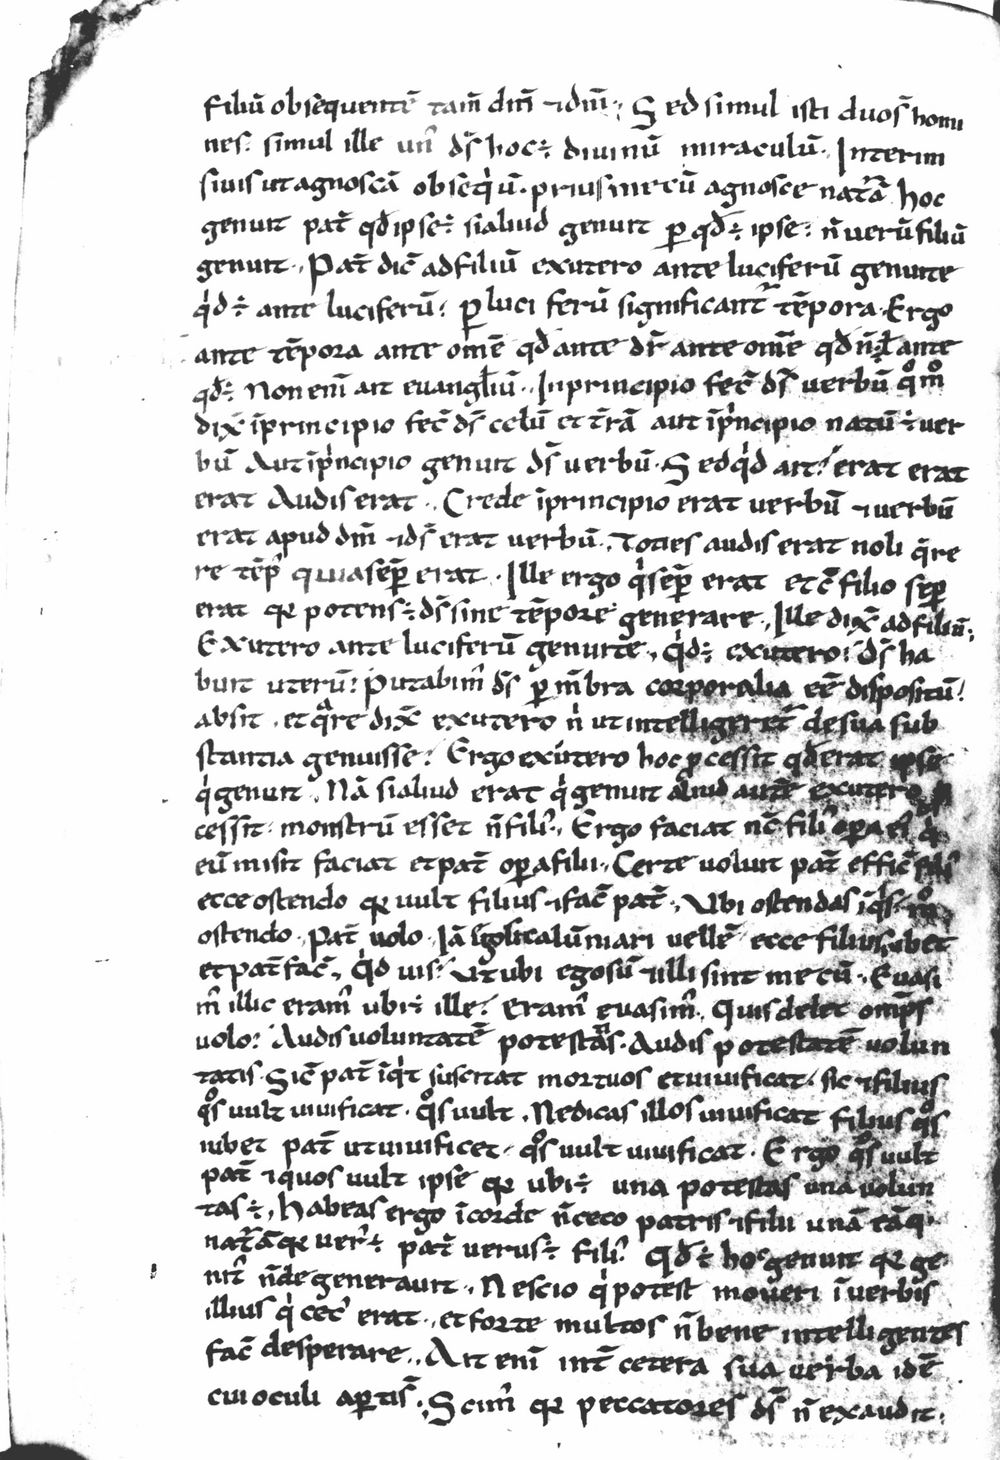 filiū obsequentē tam̄ dm̄ ⁊ dm̄. Sed simul isti duos homi
nes. simul ille un᾽ ds̄ hoc ÷ diuinū miraculū. Interim
si uis ut agnoscā obseq̇ū. prius mecū agnosce nat᷑ā hoc
genuit pat̄ qđ ipse ÷ si aliud genuit ꝑ qđ ÷ ipse. n̄ uerū filiū
genuit. Pat̄ dic̄ ad filiū ex utero ante luciferū genui te
q̇d ÷ ante luciferū? ꝑ luciferū significant᷑ tēpora. Ergo
ante tēpora ante omē qđ ante dr̄ ante omē qđ n̄ ÷ ł ante
qđ ÷ Non enī ait euangłiū. In principio fec̄ ds̄ uerbū q̊m̊
dix̄ īprincipio fec̄ ds̄ celū et t̄rā aut īpᷤncipio natū ÷ uer
bū Aut īpᷤncipio genuit ds̄ uerbū. Sed q̇d ait? erat erat
erat Audis erat. Crede īprincipio erat uerbū ⁊ uerbū
erat apud dm̄ ⁊ ds̄ erat uerbū. Toties audis erat noli q̄re
re tēp᾽ quia semꝑ erat. Ille ergo q̇ semꝑ erat et c̄ filio semꝑ
erat qꝛ potens ÷ ds̄ sine tēpore generare. Ille dix̄ ad filiū.
Ex utero ante luciferū genui te. q̇d ÷ ex utero? ds̄ ha
buit uterū? Putabim᾽ ds̄ ꝑ mēbra corporalia eē dispositū?
absit. et q̄re dix̄ ex utero n̄ ut intelligeret᷑ de sua sub
stantia genuisse? Ergo ex utero hoc ꝓcessit qđ erat ipse
q̇ genuit. Nā si aliud erat q̇ genuit aliud autē ex utero
cessit. monstrū esset n̄ fili᾽. Ergo faciat nc̄ fili᾽ oꝑa ei᾽ q̇
eū misit faciat et pat̄ oꝑa filii. Certe uoluit pat̄ effic̄
ecce ostendo qꝛ uult filius ⁊ fac̄ pat̄. Ubi ostendas īq̇s
ostendo. Pat̄ uolo. Iā calūniari uelle ecce filius iubet
et pat̄ fac̄. q̇d uis? Ut ubi ego sū ⁊ illi sint mecū. Euasi
m᾽ illic eram᾽ ubi ÷ ille? Eram᾽ euasim᾽. Quis delet omp̄s
uolo? Audis uoluntatē potestatis. Audis potestatē uolun
tatis. Sic̄ pat̄ īq̇t suscitat mortuos et uiuificat. sic ⁊ filius
q̊s uult uiuificat. q̊s uult. Ne dicas illos uiuificat filius q̊s
iubet pat̄ ut uiuificet. q̊s uult uiuificat. Ergo q̊s uult
pat̄ ⁊ quos uult ipse qꝛ ubi ÷ una potestas una uolun
tas ÷. Habeas ergo ī corde n̄ ceco patris ⁊ filii unā eāq.
nat᷑ā qꝛ uer᾽ ÷ pat̄ uerus ÷ fili᾽. Qđ ÷ hoc genuit qꝛ ge
nit᾽ n̄ degenerauit. Nescio q̇ potest moueri ī uerbis
illius q̇ cec᾽ erat. et forte multos n̄ bene intelligentes
fac̄ desperare. Ait enī int̄ cetera sua uerba idē
cui oculi aꝑti s̄. Scim᾽ qꝛ peccatores ds̄ n̄ exaudit.